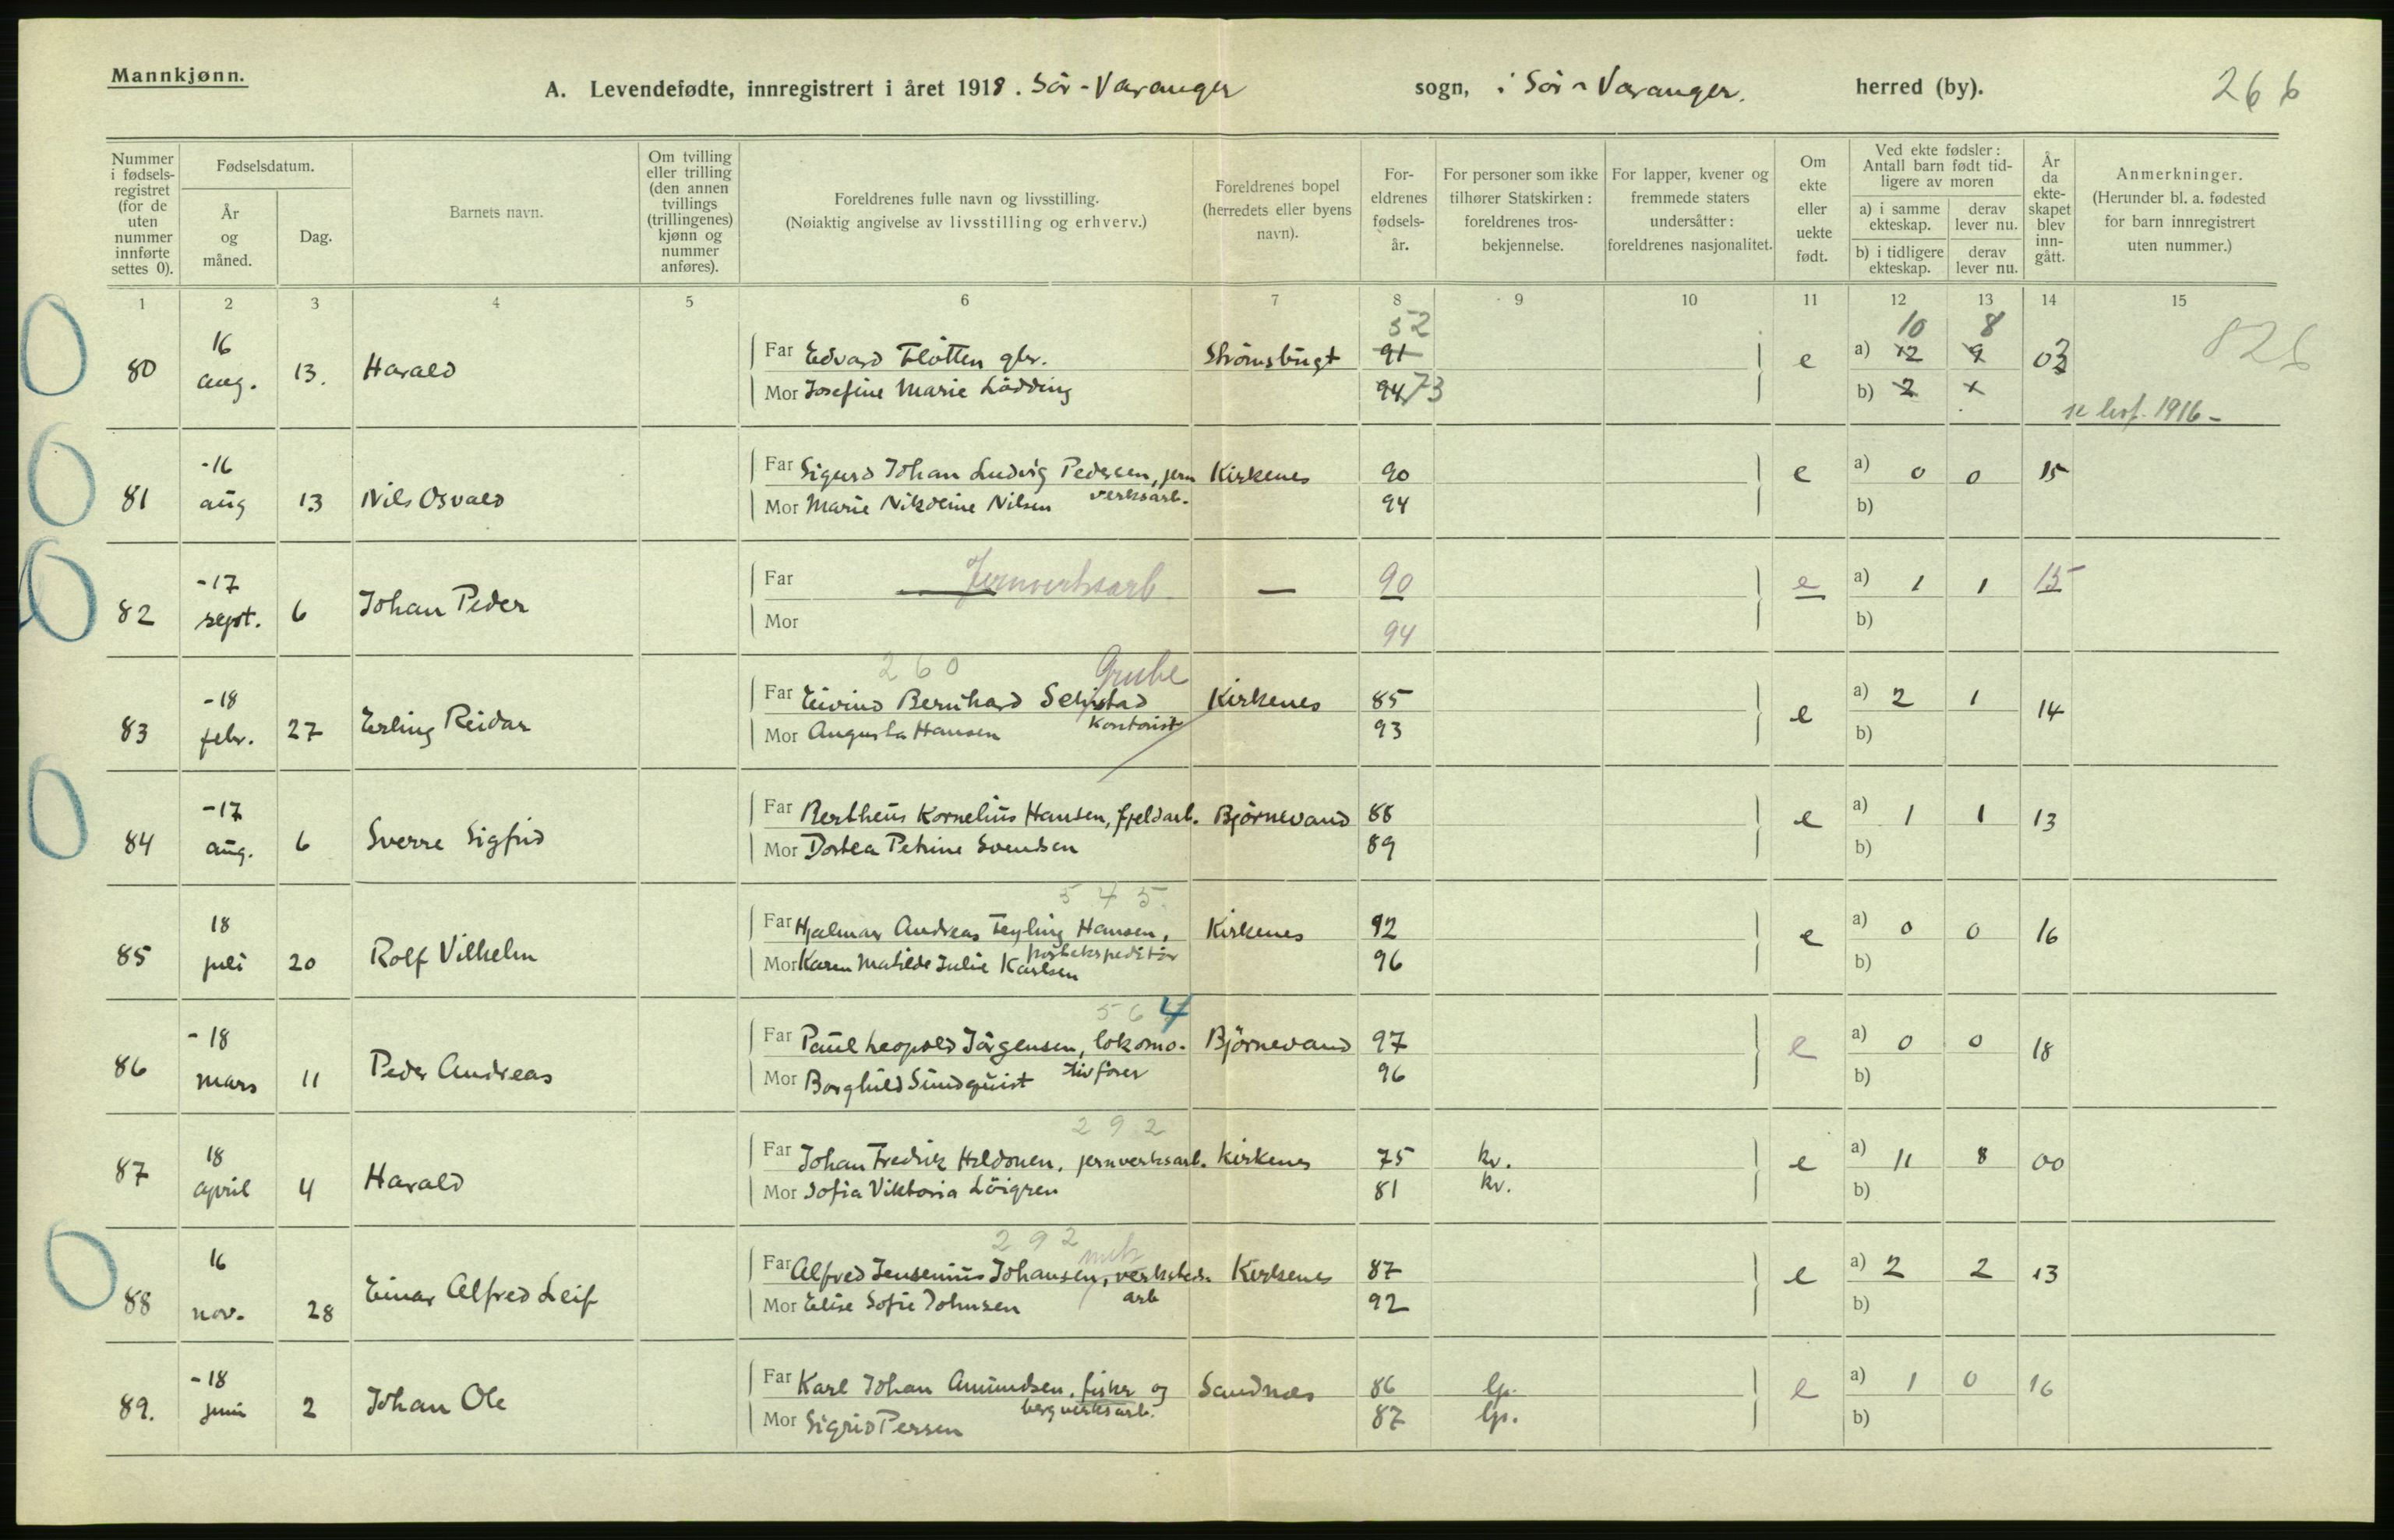 Mannkjønn.
A. Levendefødte, innregistrert i året 1918. Sör-Varanger sogn, i Sör-Varanger. herred (by). 266
Nummer i fødselsregistret (for de uten nummer innførte settes 0).
Fødselsdatum.
År og måned.
Dag.
Barnets navn.
Om tvilling eller trilling (den annen tvillings (trillingenes) kjønn og nummer anføres).
Foreldrenes fulle navn og livsstilling.
(Nøiaktig angivelse av livsstilling og erhverv.)
Foreldrenes bopel (herredets eller byens navn).
Foreldrenes fødselsår.
For personer som ikke tilhører Statskirken: foreldrenes trosbekjennelse.
For lapper, kvener og fremmede staters undersåtter: foreldrenes nasjonalitet.
Om ekte eller uekte født.
Ved ekte fødsler: Antall barn født tidligere av moren
a) i samme ekteskap.
derav lever nu.
b) i tidligere ekteskap.
derav lever nu.
År da ekteskapet blev inngått.
Anmerkninger.
(Herunder bl. a. fødested for barn innregistrert uten nummer.)
1 2 3 4 5 6 7 8 9 10 11 12 13 14 15
52 10 8
80 16 aug. 13. Harald Far Edvard Flötten gbr. Strömsbugt 91 e a) 12 9 03 826
Mor Josefine Marie Lödding 94 73 b) 2 x
se 1916-
81 -16 aug 13 Nils Osvald Far Sigurd Johan Ludvig Pedersen, jern Kirkenes 90 e a) 0 0 15
verksarb.
Mor Marie Nikoline Nilsen 94 b)
82 -17 sept. 6 Johan Peder Far Jernverksarb — 90 e a) 1 1 15
Mor 94 b)
260 Grube
83 -18 febr. 27 Erling Reidar Far Eivind Bernhard Kirkenes 85 e a) 2 1 14
Kontorist
Mor Augusta Hansen 93 b)
84 -17 aug. 6 Sverre Sigfrid Far Bertheus Kornelius Hansen, fjeldarb. Björnevand 88 e a) 1 1 13
Mor Dortea Petrine Svendsen 89 b)
545
85 18 juli 20 Rolf Vilhelm Far Hjalmar Andreas Teyling Hansen, Kirkenes 92 e a) 0 0 16
postekspeditör
Mor Karen Matilde Julie Karlsen 96 b)
564
86 -18 mars 11 Peder Andreas Far Paul Leopold Jörgensen, lokomo- Björnevand 97 e a) 0 0 18
tivförer
Mor Borghild Sundquist 96 b)
292
87 18 april 4 Harald Far Johan Fredrik Heldonen, jernverksarb. Kirkenes 75 kv. e a) 11 8 00
Mor Sofia Viktoria Löigren 81 kv. b)
292
88 16 nov. 28 Einar Alfred Leif Far Alfred Jensenius Johansen, verksteds- Kirkenes 87 e a) 2 2 13
arb
Mor Elise Sofie Johnsen 92 b)
89. -18 juni 2 Johan Ole Far Karl Johan Amundsen, fisker og Sandnes 86 lp. e a) 1 0 16
bergverksarb.
Mor Sigrid Persen 87 lp. b)